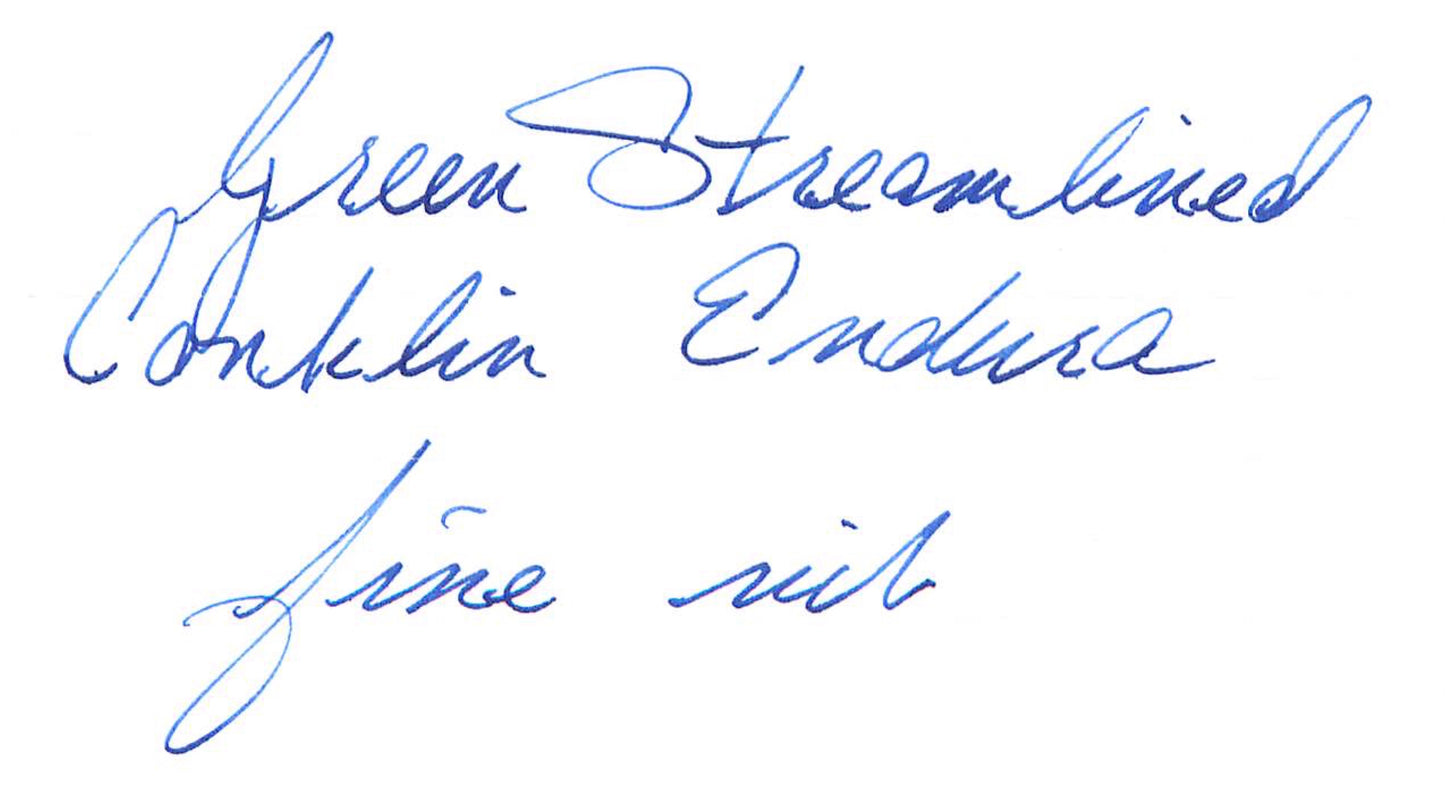 Green Streamlined
Conklin Endura
fine nib